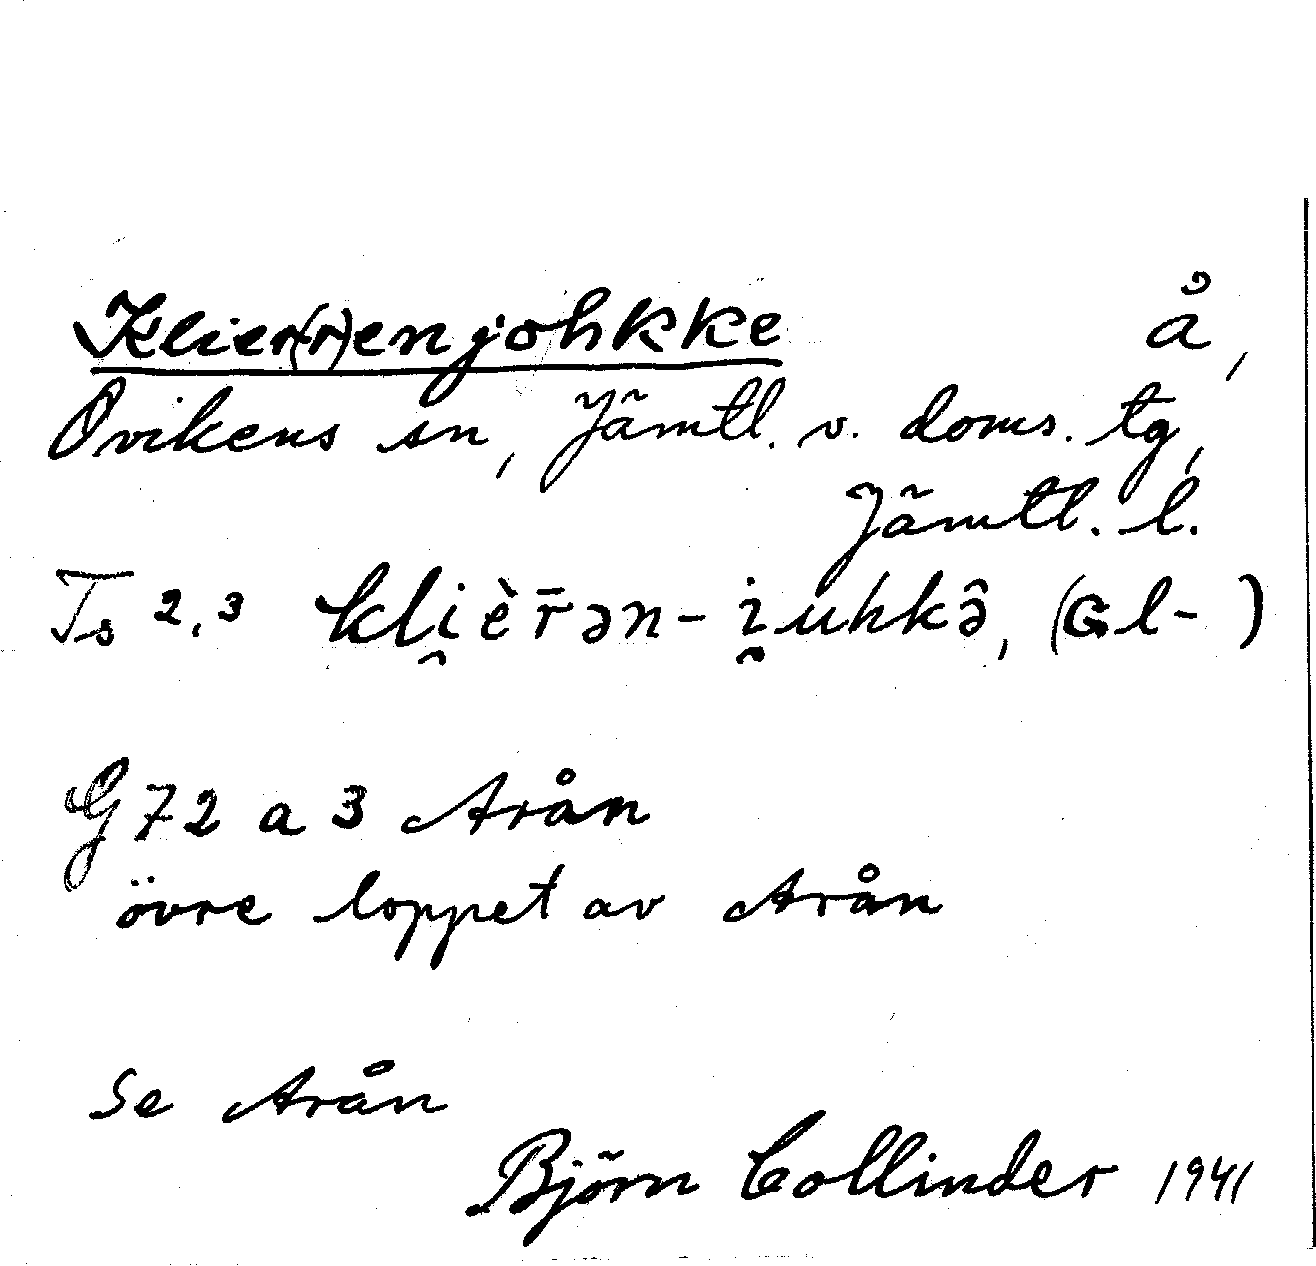 Klier(r)enjohkke å,
Ovikens sn, Jämtl. v. doms. tg,
Jämtl. l.
Ts 2,3 kli̯èr̄ən-i̯uhkə̂, (Gl- )
G 72 a 3 Arån
övre loppet av Arån
Se Arån
Björn Collinder 1941